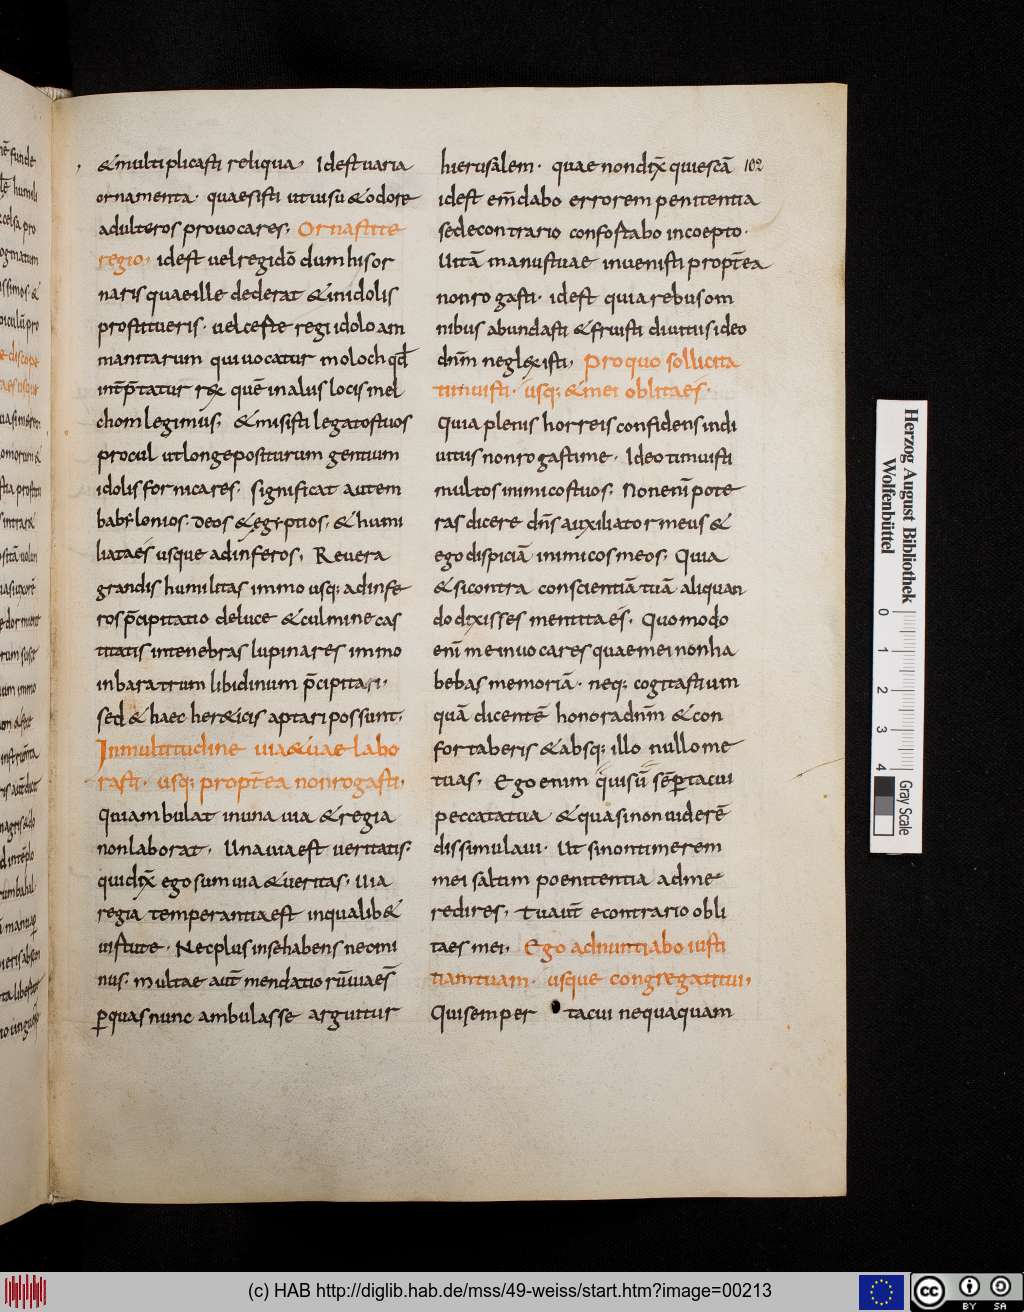 &multiplicasti reliqua, Idest uaria
ornamenta· quaesisti utuisu & odore
adulteros prouocares; Ornastite
regio, idest uel regi dō dum his or
naris quae ille dederat & in idolis
prostitueris· uel certe regi idolo am
manitarum qui uocatur moloch qđ
intēp̄tatur rex quē in aliis locis mel
chom legimus; & misisti legatos tuos
procul ut longe positurum gentium
idolis fornicares, significat autem
babylonios· deos & egyptios, & humi
liata es usque ad inferos, Reuera
grandis humilitas immo usq; ad infe
ros p̄cipitatio de luce & culmine cas
titatis in tenebras lupinares immo
in baratrum libidinum p̄cipitari,
sed & haec her&icis aptari possunt;
In multitudine uia & uae labo
rasti· usq; propt̄ea non rogasti,
Qui ambulat in una uia & regia
non laborat, Una uia est ueritatis;
qui dix̄ ego sum uia & ueritas, Uia
regia temperantia est in qua lib&
uistute· Nec plus in se habens nec mi
nus, multae aut̄ mendatiorū uiae s̄
ꝑ quas nunc ambulasse arguitur
hierusalem· quae non dix̄ quiescā 102
idest em̄dabo errorem penitentia
sed econtrario confortabo in coepto·
Uitā manus tuae inuenisti propt̄ea
non rogasti· idest quia rebus om
nibus abundasti & fruisti diuitiis ideo
dn̄m neglexisti, Pro quo sollicita
timuisti· usq; & mei oblita es·
Quia plenis horreis confidens in di
uitiis non rogasti me· Ideo timuisti
multos inimicos tuos, Non eni pote
ras dicere dn̄s auxiliator meus &
ego dispiciā inimicos meos, Quia
& si contra conscientiā tuā aliquan
do dixisses mentita es, Quomodo
enī me inuocares quae mei non ha
bebas memoriā· neq; cogitasti um
quā dicentē honora dn̄m & con
fortaberis & absq; illo nullo me
tuas, Ego enim quisū sēꝑ tacui
peccata tua & quasi non uiderē
dissimulaui· Ut si non timerem
mei saltim poenitentia ad me
redires, Tu aut̄ econtrario obli
ta es mei, Ego adnuntiabo iusti
tiam tuam· usque congregati tui,
Qui semper tacui nequaquam
Herzog August Bibliothek
Wolfenbüttel
0 1 2 3 4
Gray Scale
(c) HAB http://diglib.hab.de/mss/49-weiss/start.htm?image=00213
cc BY SA